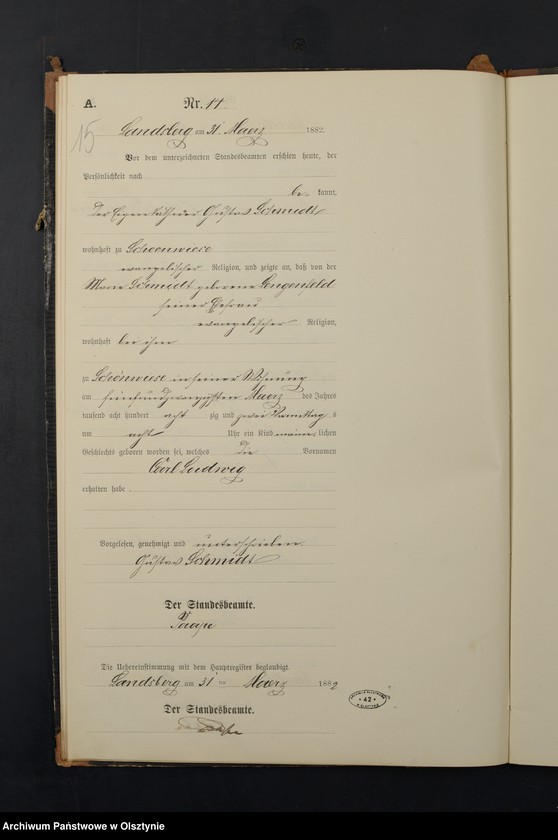 A. Nr. 44
15
Landsberg am 31. Maerz 1882.
Vor dem unterzeichneten Standesbeamten erschien heute, der
Persönlichkeit nach
be kannt,
der Eigenkäthner Gustav Schmidt
wohnhaft zu Schoenwiese
evangelischer Religion, und zeigte an, daß von der
Marie Schmidt geborene Langenfeld
seiner Ehefrau
evangelischer Religion,
wohnhaft bei ihm
zu Schönwiese in seiner Wohnung
am fünfundzwanzigsten Maerz des Jahres
tausend acht hundert acht zig und zwei Vormittag s
um acht Uhr ein Kind männ lichen
Geschlechts geboren worden sei, welches die Vornamen
Carl Ludwig
erhalten habe.
Vorgelesen, genehmigt und unterschrieben.
Gustav Schmidt
Der Standesbeamte.
Die Uebereinstimmung mit dem Hauptregister beglaubigt.
Landsberg am 31 ten Maerz 1882
Der Standesbeamte.
42
Archiwum Państwowe w Olsztynie